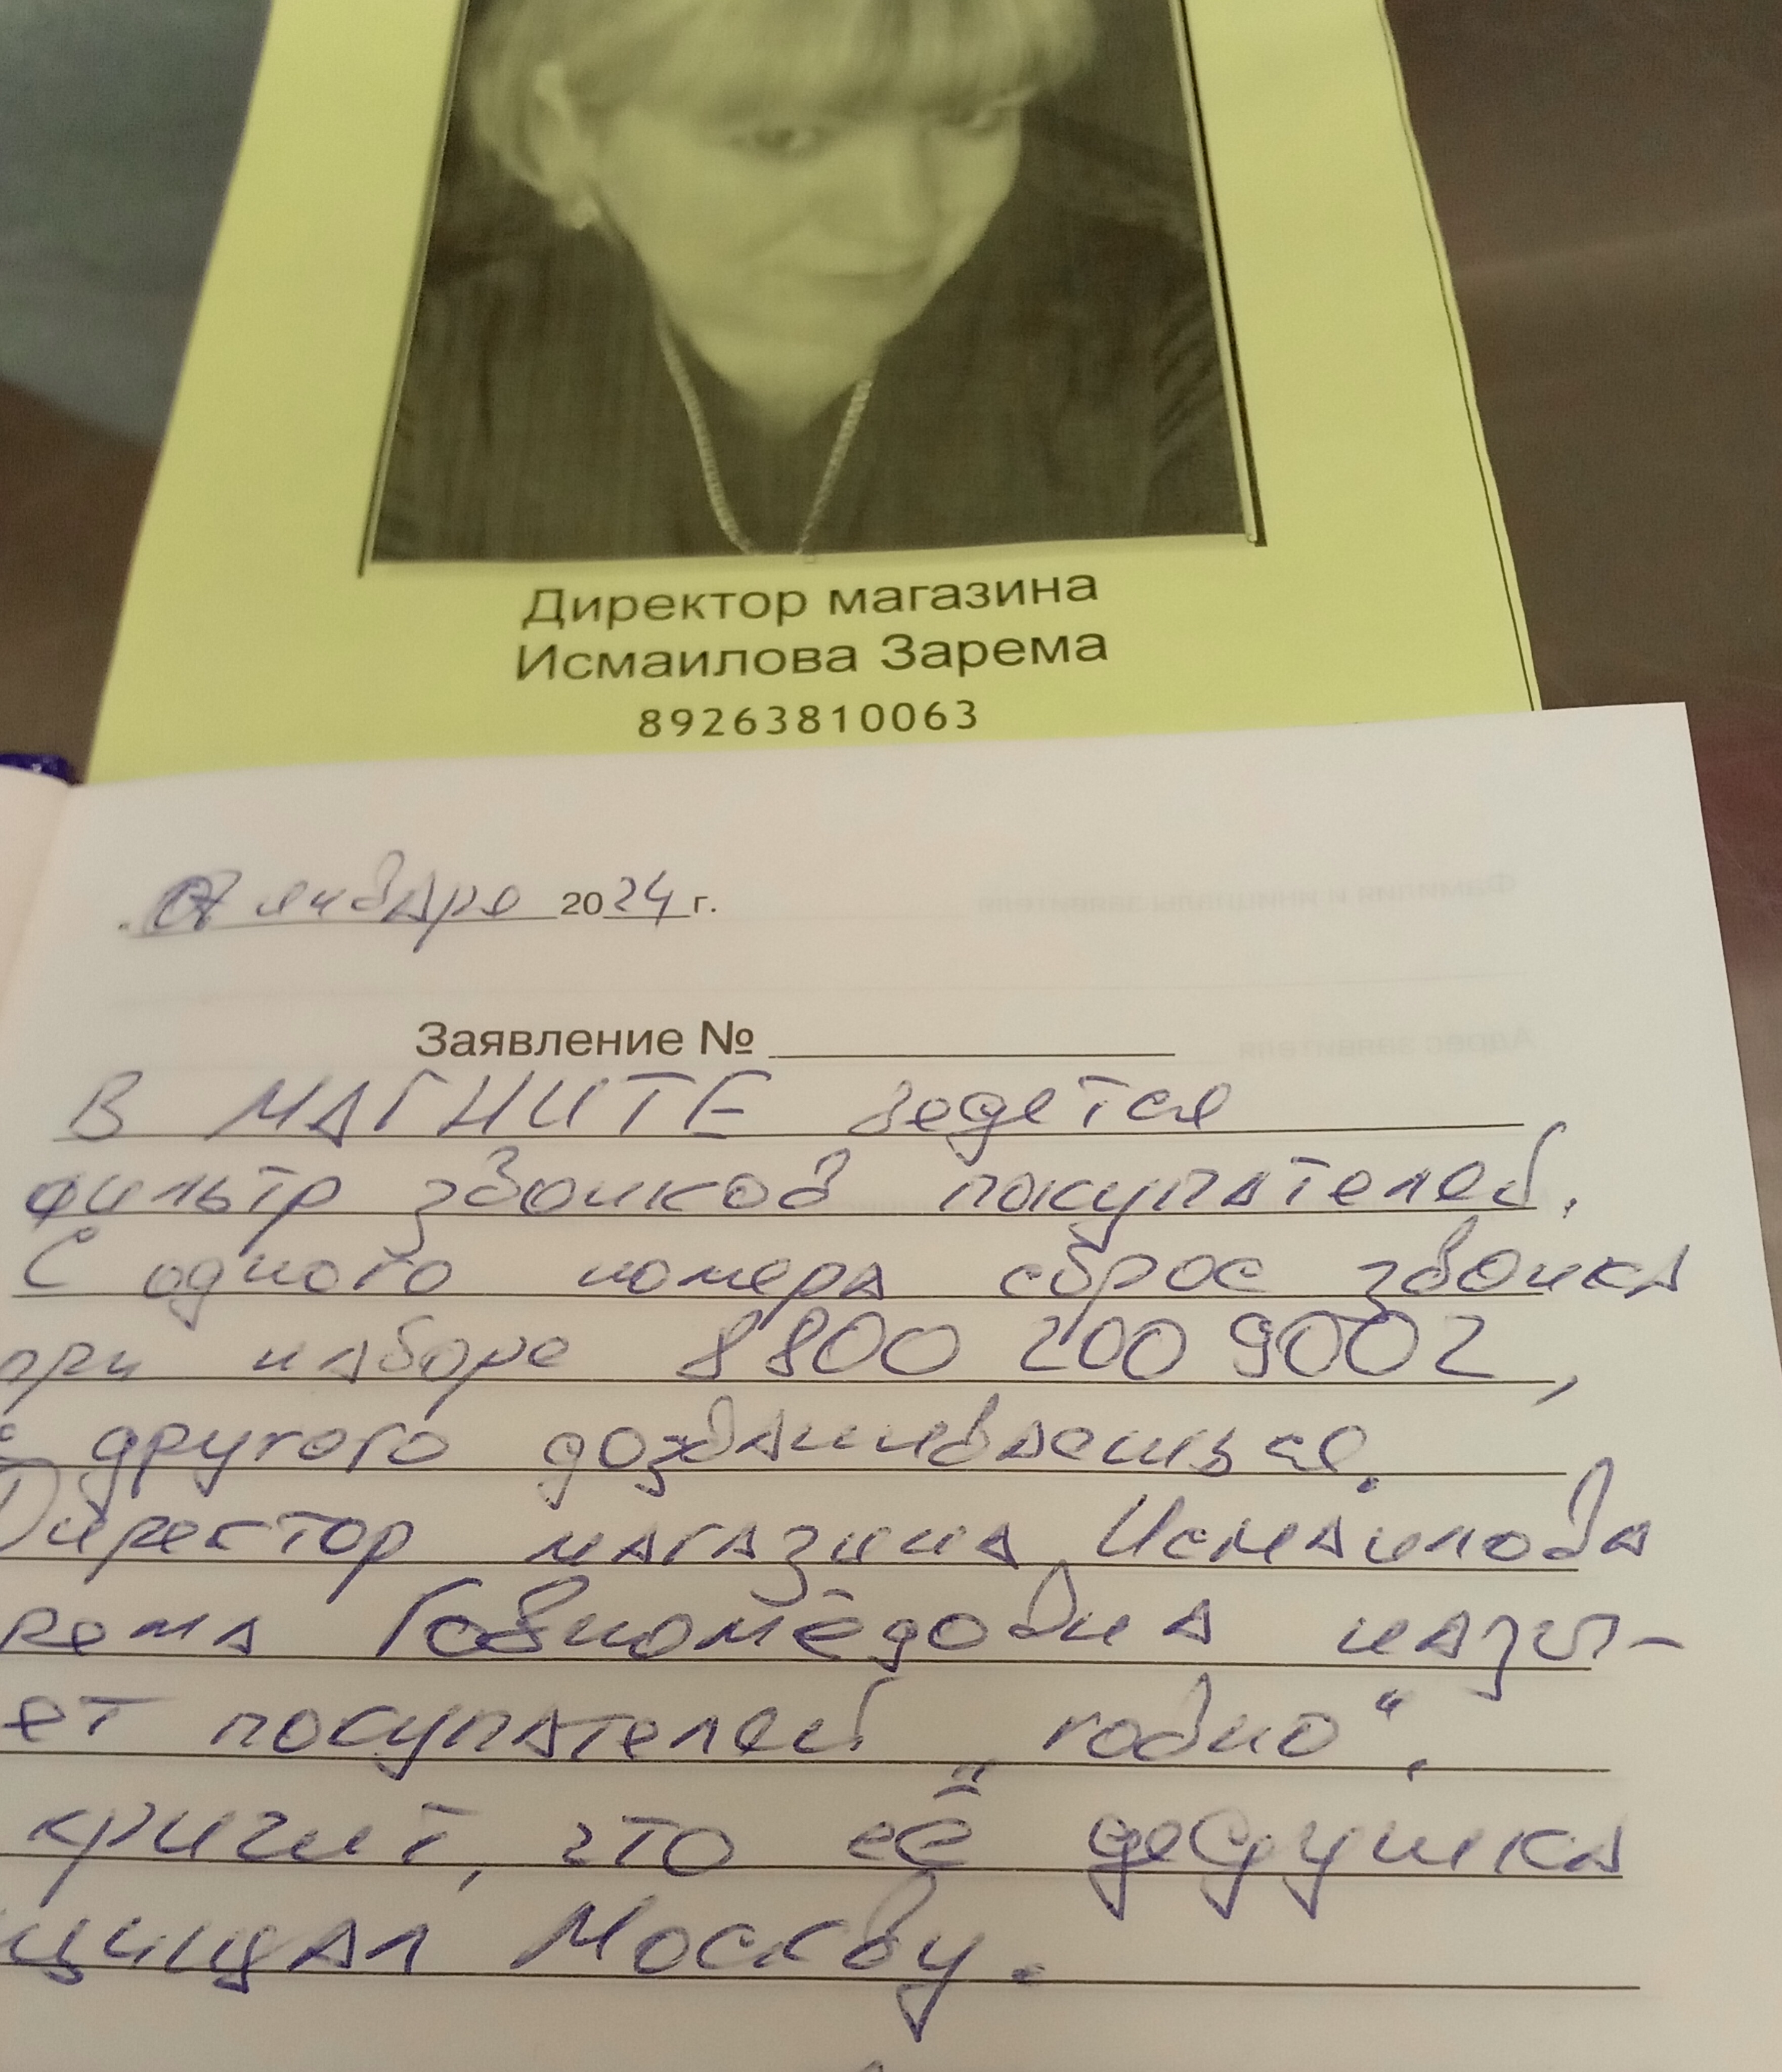 Директор магазина
Исмаилова Зарема
89263810063
07 января 2024 г.
Заявление №
В МАГНИТЕ ведется
фильтр звонков покупателей.
С одного номера сброс звонка
при наборе 8800 200 9002,
с другого дозваниваешься.
Директор магазина Исмаилова
рема Говномёдовна назы-
ет покупателей "говно".
кричит, что её дедушка
щищал Москву.